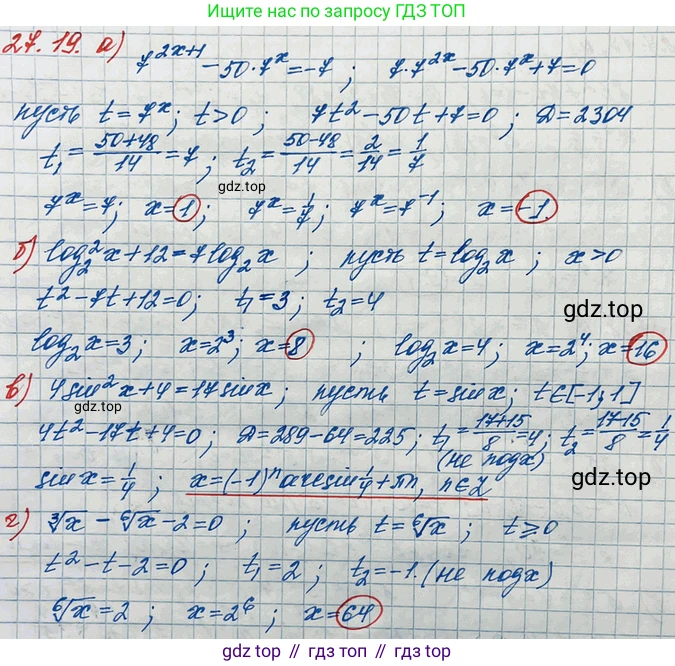 Нашли ошибку или неточности?
Пишите по запросу ГДЗ ТОП
27.19. а) 7^{2x+1} - 50·7^x = -7 ; 7·7^{2x} - 50·7^x + 7 = 0
пусть t = 7^x ; t > 0 ; 7t^2 - 50t + 7 = 0 ; D = 2304
t_1 = \frac{50+48}{14} = 7 ; t_2 = \frac{50-48}{14} = \frac{2}{14} = \frac{1}{7}
gdz.top
7^x = 7 ; x = 1 ; 7^x = \frac{1}{7} ; 7^x = 7^{-1} ; x = -1.
б) log_2^2 x + 12 = 7 log_2 x ; пусть t = log_2 x ; x > 0
t^2 - 7t + 12 = 0 ; t_1 = 3 ; t_2 = 4
gdz.top
log_2 x = 3 ; x = 2^3 ; x = 8 ; log_2 x = 4 ; x = 2^4 ; x = 16
в) 4 sin^2 x + 4 = 17 sin x ; пусть t = sin x ; t ∈ [-1; 1]
gdz.top
4t^2 - 17t + 4 = 0 ; D = 289 - 64 = 225 ; t_1 = \frac{17+15}{8} = 4 ; t_2 = \frac{17-15}{8} = \frac{1}{4}
(не подх)
sin x = \frac{1}{4} ; x = (-1)^n arcsin \frac{1}{4} + πn, n ∈ Z
gdz.top
г) \sqrt[3]{x} - \sqrt[6]{x} - 2 = 0 ; пусть t = \sqrt[6]{x} ; t ≥ 0
t^2 - t - 2 = 0 ; t_1 = 2 ; t_2 = -1. (не подх)
\sqrt[6]{x} = 2 ; x = 2^6 ; x = 64
gdz.top // gdz.top // gdz.top // gdz.top // gdz.top